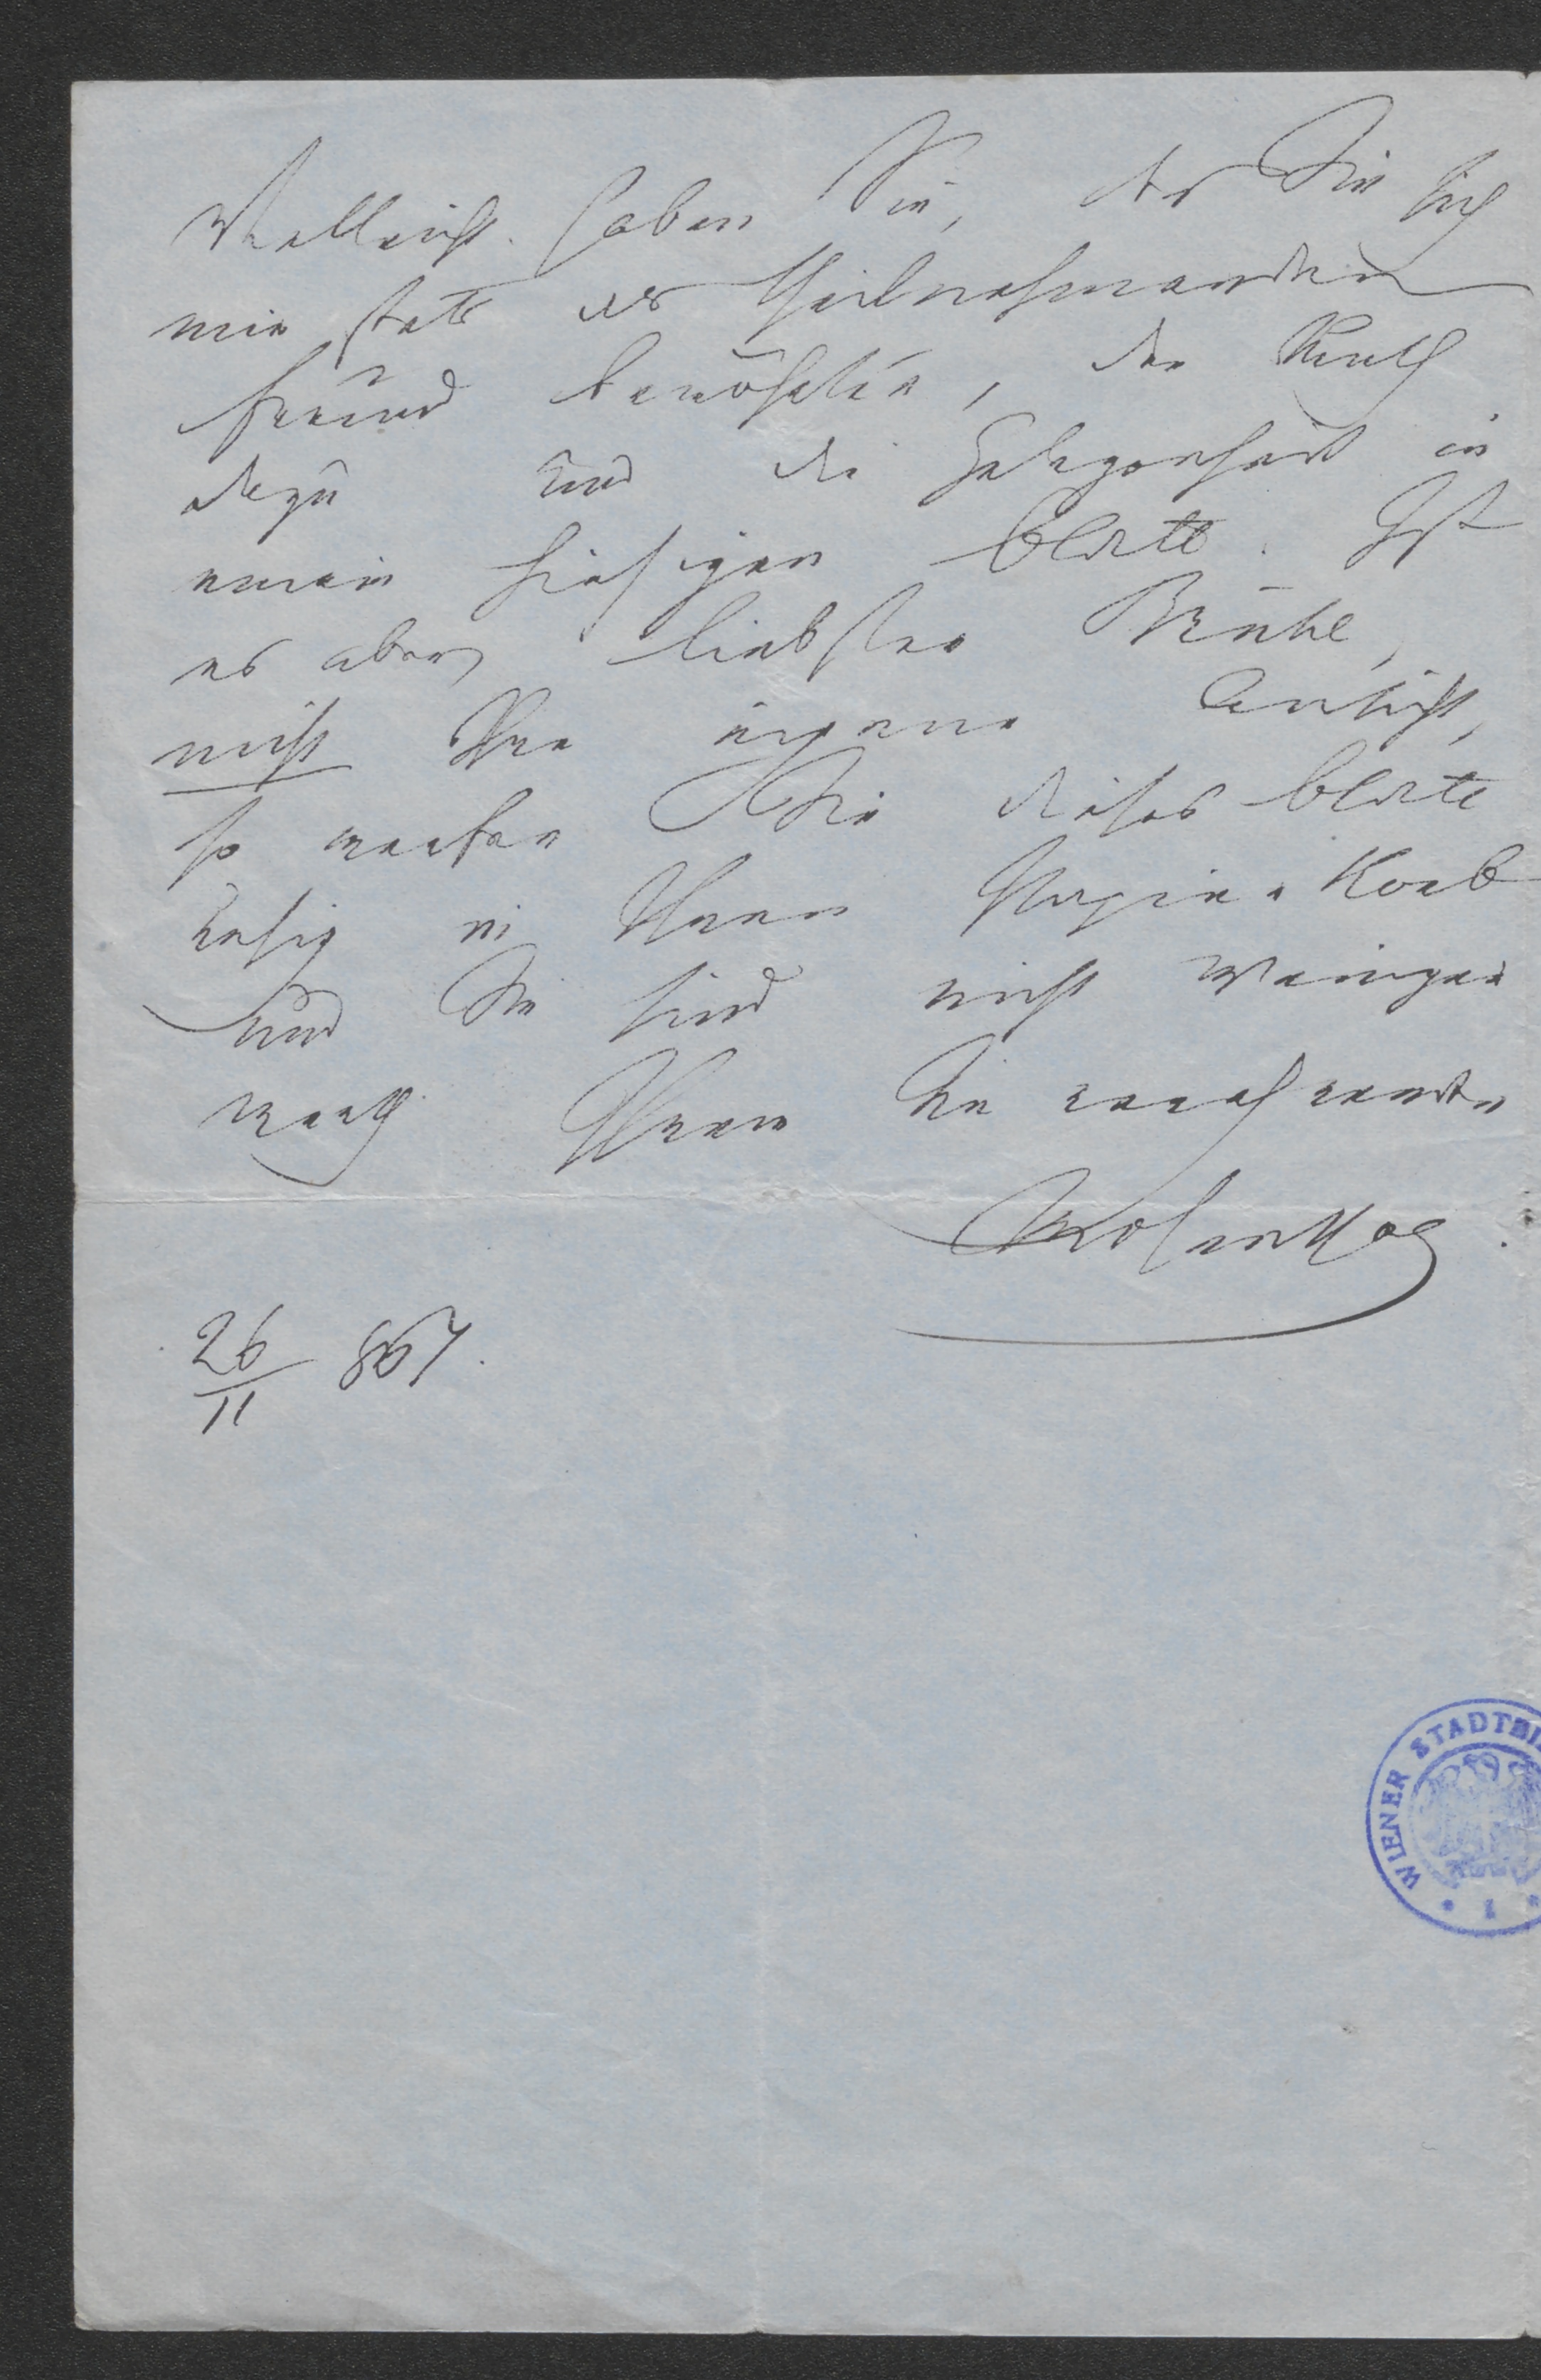 Vielleicht haben Sie, der Sie sich
mir stets als theilnehmenden
Freund bewährten, den Muth
dazu und die Gelegenheit in
einem hiesigen Blatte. Ist
es aber, liebster Bruder,
nicht Ihre eigene Ansicht,
so werfen Sie dieses Blatt
ruhig in Ihren Papier-Korb
und Sie sind nicht weniger
werth Ihrem Sie verehrenden
Mosenthal
26/11 867.
WIENER STADTBI